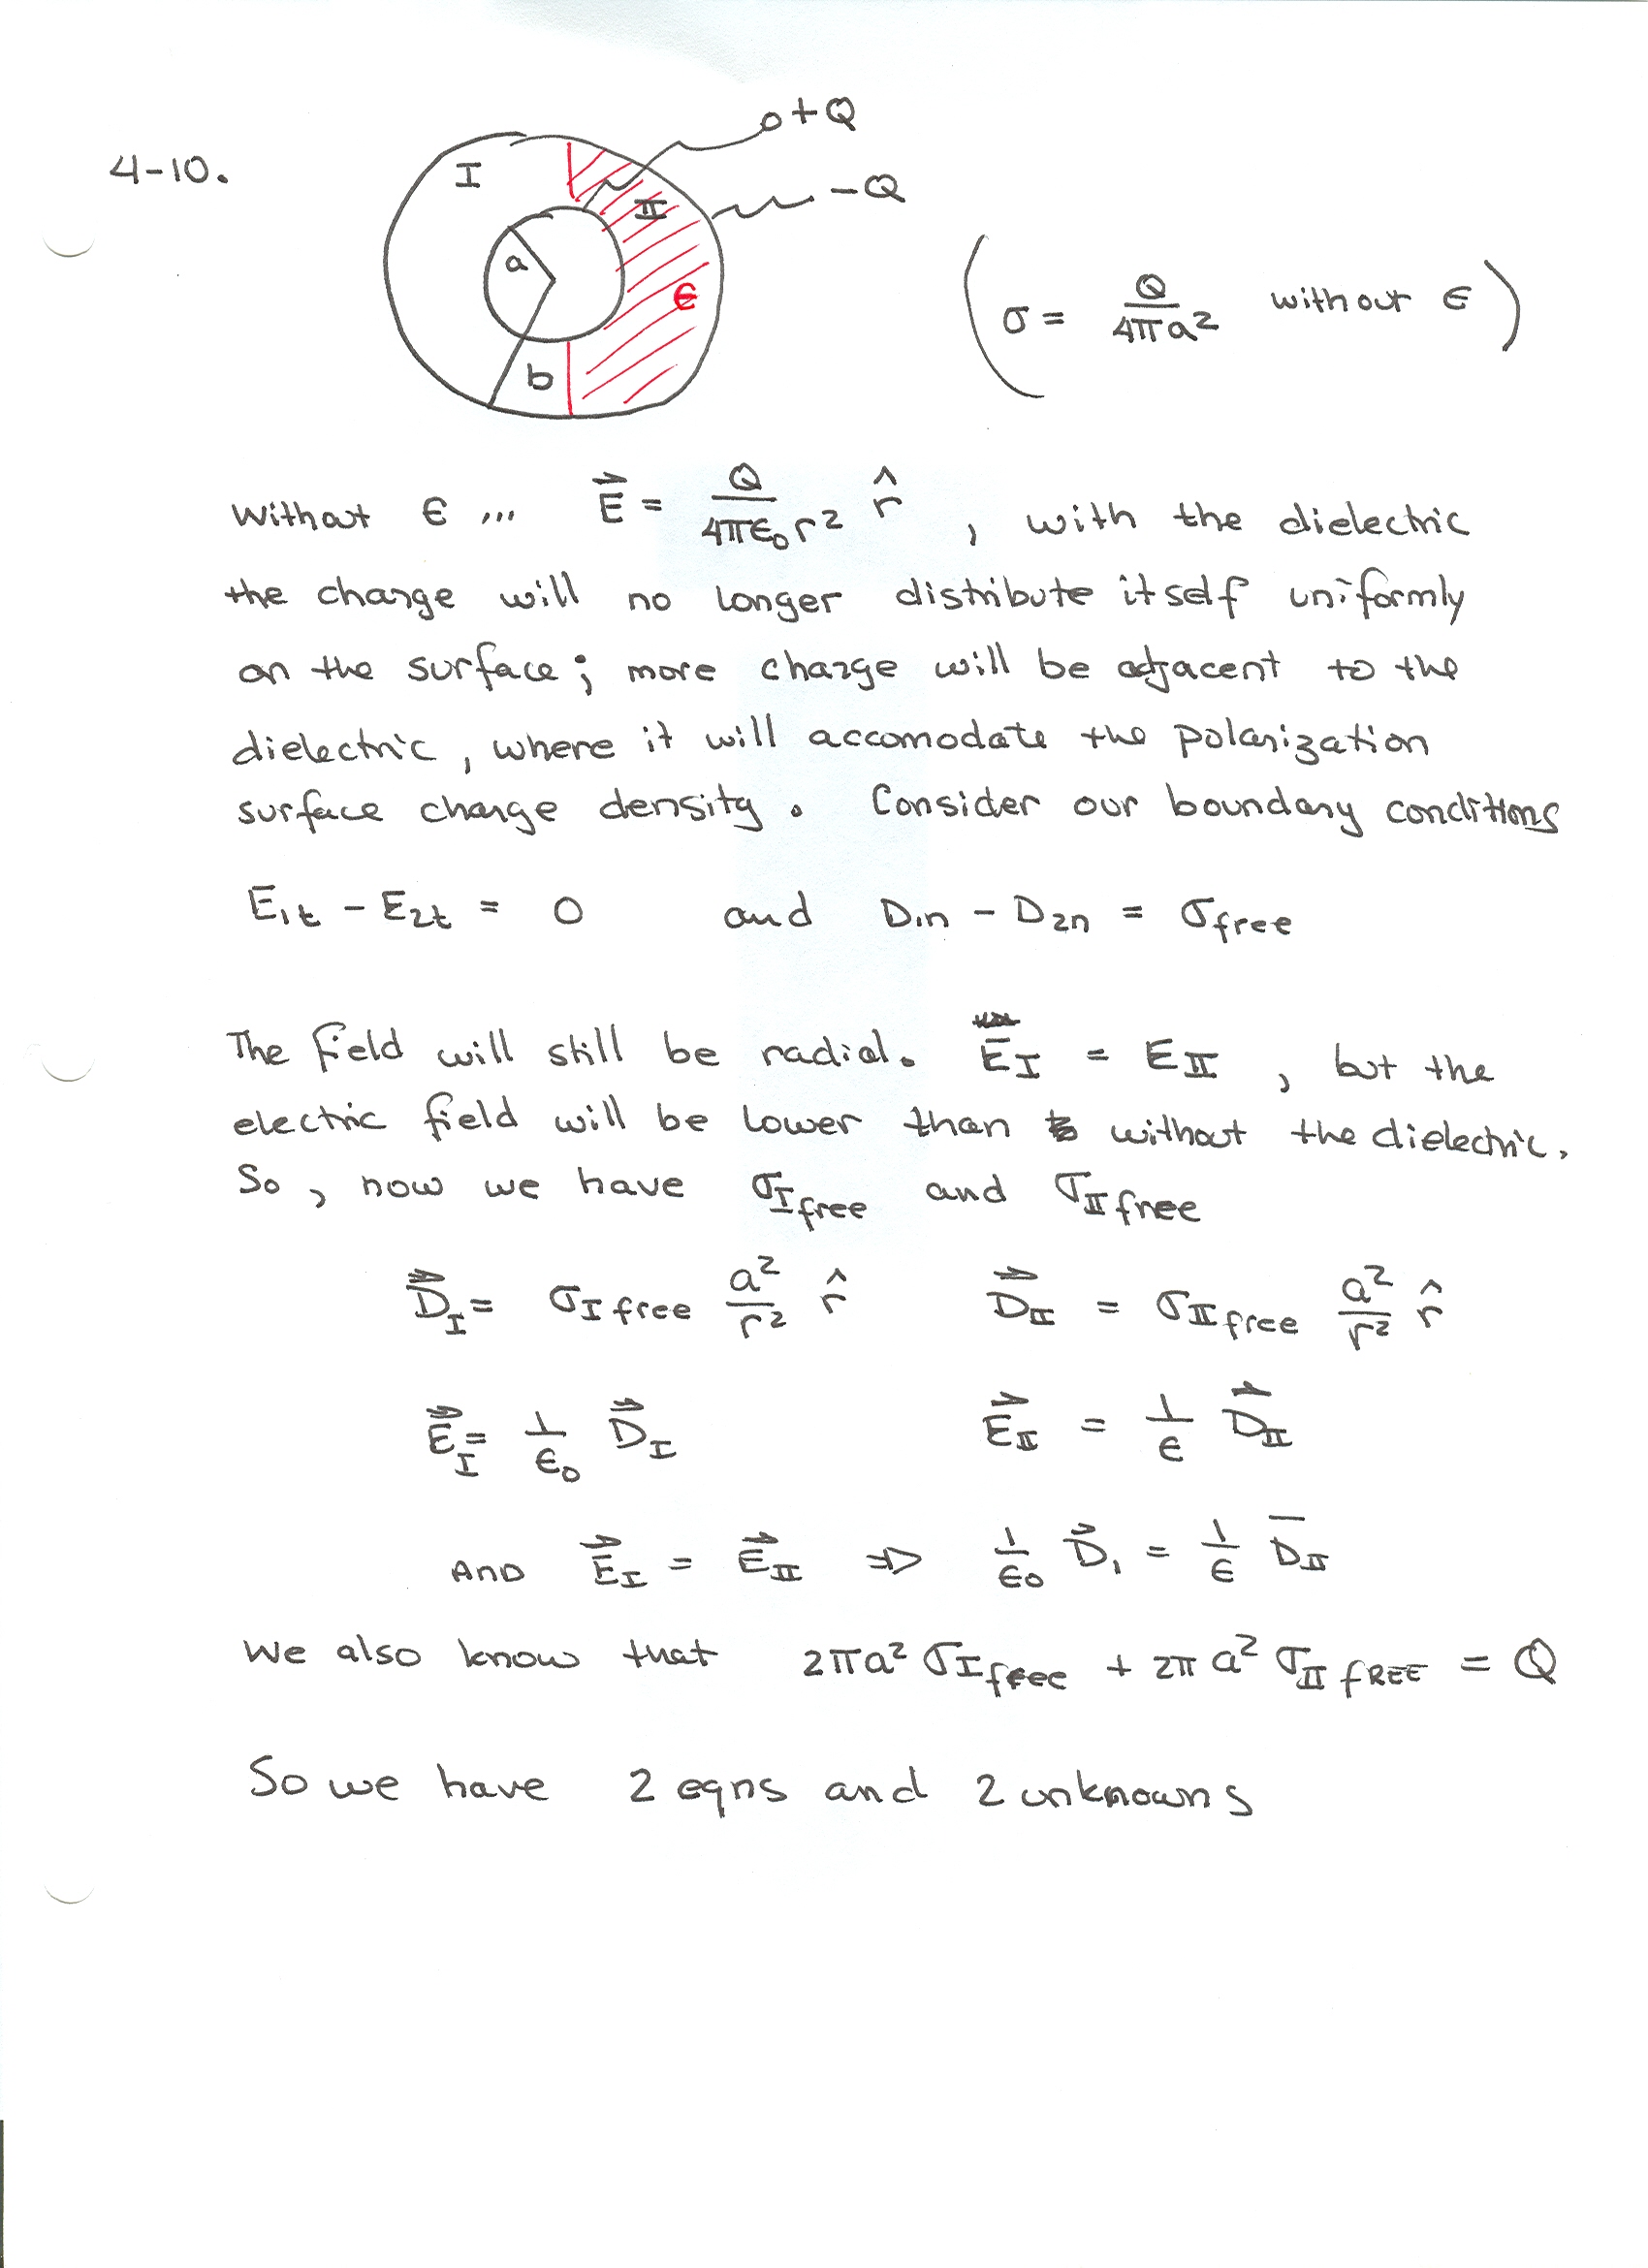 4-10.
I
II
+Q
-Q
a
b
ϵ
(σ = Q/4πa² without ϵ)
Without ϵ ... E⃗ = Q/4πϵ₀r² r̂ , with the dielectric
the charge will no longer distribute itself uniformly
on the surface; more charge will be adjacent to the
dielectric, where it will accomodate the polarization
surface charge density. Consider our boundary conditions
E₁t - E₂t = 0 and D₁n - D₂n = σfree
The field will still be radial. E_I = E_II , but the
electric field will be lower than without the dielectric.
So, now we have σ_I free and σ_II free
D⃗_I = σ_I free a²/r² r̂ D⃗_II = σ_II free a²/r² r̂
E⃗_I = 1/ϵ₀ D⃗_I E⃗_II = 1/ϵ D⃗_II
AND E⃗_I = E⃗_II ⇒ 1/ϵ₀ D⃗₁ = 1/ϵ D̄_II
We also know that 2πa² σ_I free + 2πa² σ_II FREE = Q
So we have 2 eqns and 2 unknowns